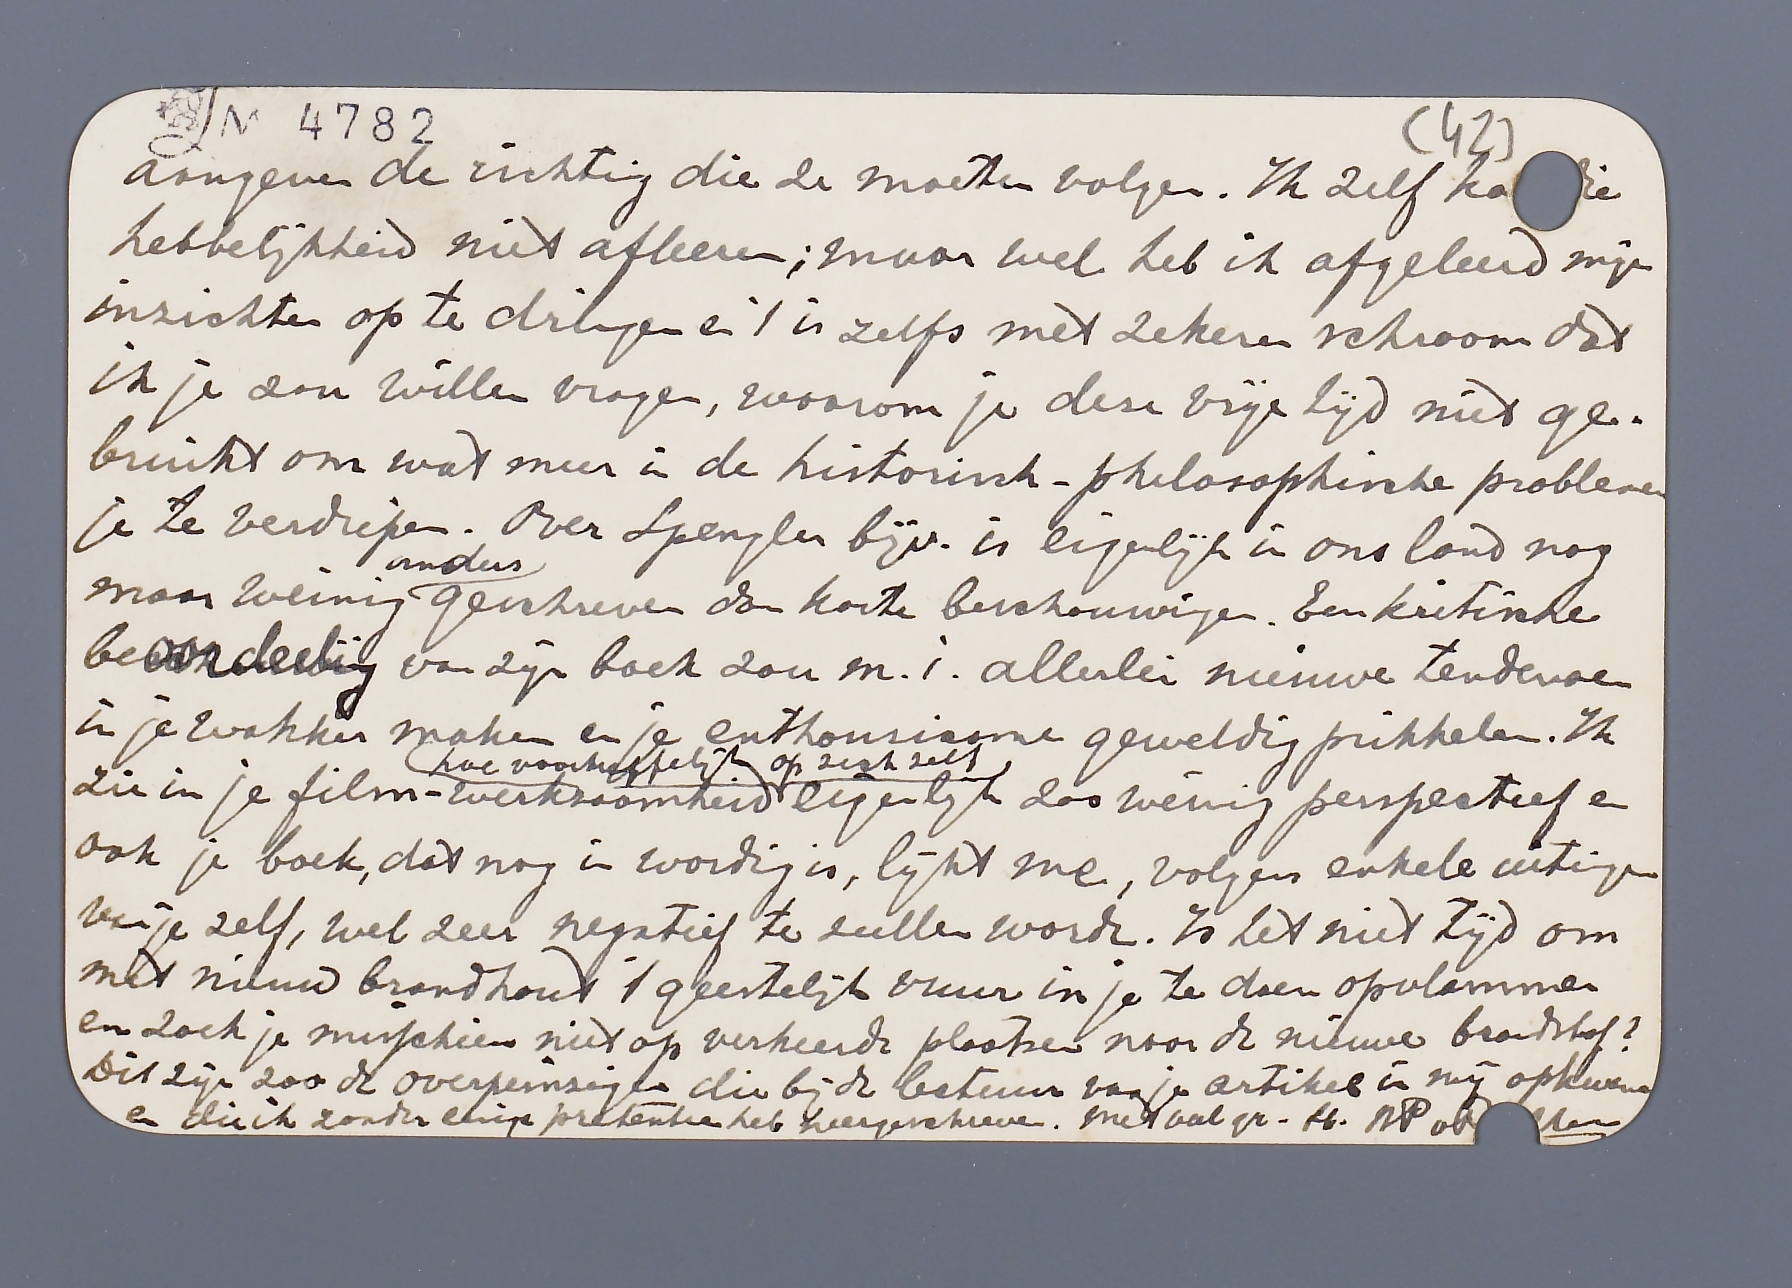 M 4782
(42)
aangeven de richting die ze moeten volgen. Ik zelf ka die
hebbelijkheid niet afleeren; maar wel heb ik afgeleerd mijn
inzichten op te dringen en 't is zelfs met zekeren schroom dat
ik je zou willen vragen, waarom je deze vrije tijd niet ge-
bruikt om wat meer in de historisch-philosophische problemen
je te verdiepen. Over Spengler bijv. is eigenlijk in ons land nog
maar weinig anders geschreven dan korte beschouwingen. Een kritische
beoordeeling van zijn boek zou m. i. allerlei nieuwe tendenzen
in je wakker maken en je enthousiasme geweldig prikkelen. Ik
zie in je film-werkzaamheid hoe voortreffelijk op zich zelf eigenlijk zoo weinig perspectief en
ook je boek, dat nog in wording is, lijkt me, volgens enkele uitingen
van je zelf, wel zeer negatief te zullen worden. Is het niet tijd om
met nieuw brandhout 't geestelijk vuur in je te doen opvlammen
en zoek je misschien niet op verkeerde plaatsen naar de nieuwe brandstof?
Dit zijn zoo de overpeinzingen die bij de lectuur van je artikel in mij opkwamen
en die ik zonder eenige pretentie heb neergeschreven. Met veel gr. - H.